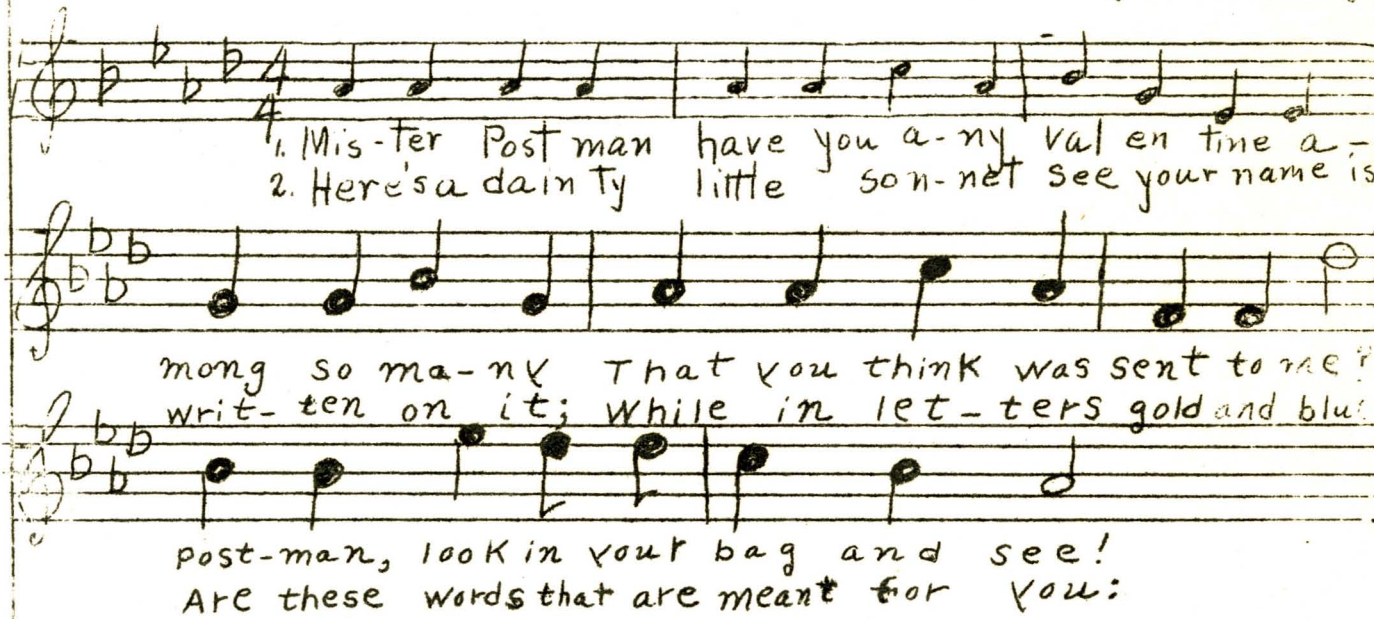 4
4
1. Mis-ter Post man have you a-ny val en tine a-
2. Here's a dain ty little son-net see your name is
mong so ma-ny That you think was sent to me?
writ-ten on it; While in let-ters gold and blue
post-man, look in your bag and see!
Are these words that are meant for you: